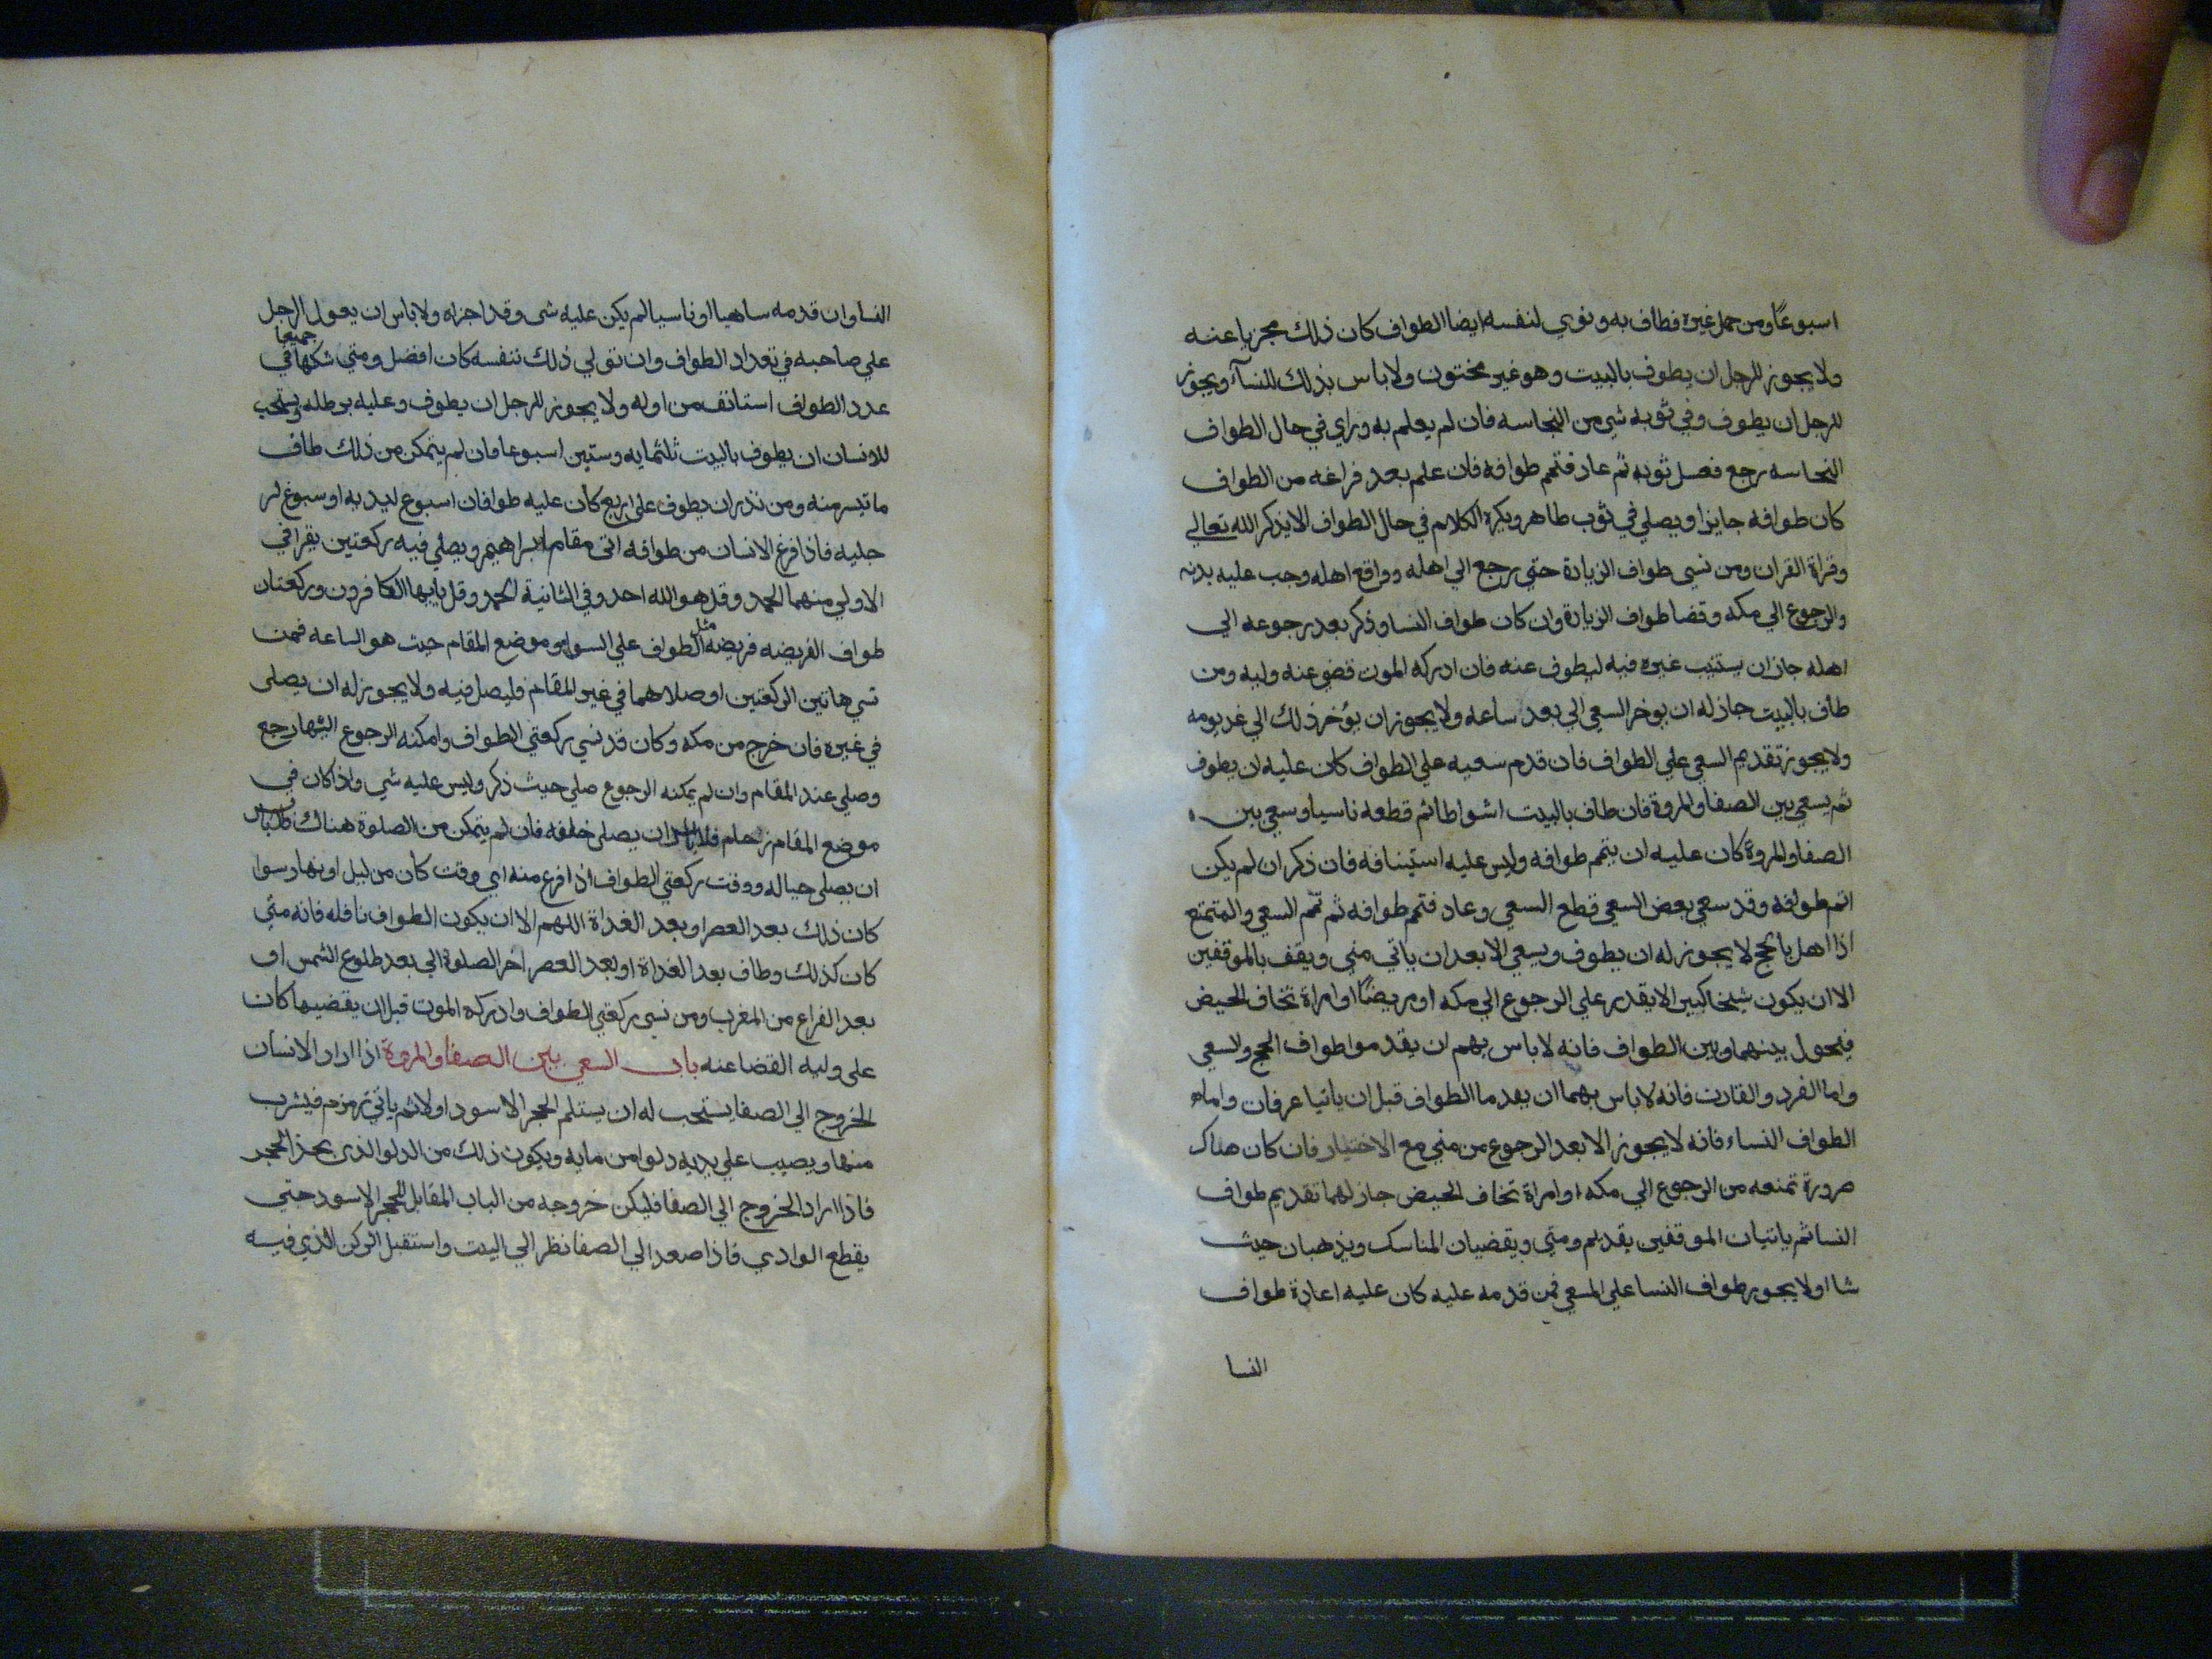 اسبوعًا ومن حمل غيره فطاف به ونوي لنفسه ايضا الطواف كان ذلك مجزيا عنه
ولا يجوز للرجل ان يطوف بالبيت وهو غير مختون ولا باس بذلك للنسآ ويجوز
للرجل ان يطوف وفي ثوبه شي من النجاسه فان لم يعلم به وراي في حال الطواف
النجاسه رجع فعسل ثوبه ثم عاد فتمم طوافه فان علم بعد فراغه من الطواف
كان طوافه جايزا ويصلي في ثوب طاهر ويكره الكلام في حال الطواف الا بذكر الله تعالي
وقراة القران ومن نسي طواف الزيارة حتي رجع الي اهله وواقع اهله وجب عليه بدنه
والرجوع الي مكه وقضا طواف الزيارة وان كان طواف النسا وذكر بعد رجوعه الي
اهله جاز ان يستنيب غيره فيه ليطوف عنه فان ادركه الموت قضي عنه وليه ومن
طاف بالبيت جاز له ان يوخر السعي الي بعد ساعه ولا يجوز ان يؤخر ذلك الي غد يومه
ولا يجوز تقديم السعي علي الطواف فان قدم سعيه علي الطواف كان عليه ان يطوف
ثم يسعي بين الصفا والمروة فان طاف بالبيت اشواطا ثم قطعه ناسيا وسعي بين
الصفا والمروة كان عليه ان يتمم طوافه وليس عليه استينافه فان ذكر ان لم يكن
اتم طوافه وقد سعي بعض السعي قطع السعي وعاد فتمم طوافه ثم تمم السعي والمتمتع
اذا اهل بالحج لا يجوز له ان يطوف ويسعي الا بعد ان ياتي مني ويقف بالموقفين
الا ان يكون شيخا كبيرا لا يقدر علي الرجوع الي مكه او مريضًا او امراة تخاف الحيض
فيحول بينهما وبين الطواف فانه لا باس بهم ان يقدموا طواف الحج والسعي
واما المفرد والقارن فانه لا باس بهما ان يقدما الطواف قبل ان ياتيا عرفات واما
الطواف النساء فانه لا يجوز الا بعد الرجوع من مني مع الاختيار فان كان هناك
ضرورة تمنعه من الرجوع الي مكه او امراة تخاف الحيض جاز لهما تقديم طواف
النسا ثم ياتيان الموقفين ومني ويقضيان المناسك ويذهبان حيث
شااو لا يجوز طواف النسا علي السعي فمن قدمه عليه كان عليه اعادة طواف
النسا
النسا وان قدمه ساهيا او ناسيا لم يكن عليه شي وقد اجزاه ولا باس ان يعول الرجل
علي صاحبه في تعداد الطواف وان تولي ذلك بنفسه كان افضل ومتي شكا جميعا في
عدد الطواف استانف من اوله ولا يجوز للرجل ان يطوف وعليه برطله ويستحب
للانسان ان يطوف بالبيت ثلثمايه وستين اسبوعا فان لم يتمكن من ذلك طاف
ما تيسر منه ومن نذر ان يطوف علي اربع كان عليه طوافان اسبوع ليديه واسبوع لر
جليه فاذا فرغ الانسان من طوافه اتي مقام ابراهيم ويصلي فيه ركعتين يقرا في
الاولي منهما الحمد وقل هو الله احد وفي الثانية الحمد وقل يا ايها الكافرون وركعتان
طواف الفريضه فريضه مثل الطواف علي السوا وموضع المقام حيث هو الساعه فمن
نسي هاتين الركعتين او صلاهما في غير المقام فليصل فيه ولا يجوز له ان يصلي
في غيره فان خرج من مكه وكان قد نسي ركعتي الطواف وامكنه الرجوع اليها رجع
وصلي عند المقام وان لم يمكنه الرجوع صلي حيث ذكر وليس عليه شي واذا كان في
موضع المقام زحام فلا باس ان يصلي خلفه فان لم يتمكن من الصلوة هناك فلا باس
ان يصلي حياله ووقت ركعتي الطواف اذا فرغ منه اي وقت كان من ليل او نهار سوا
كان ذلك بعد العصر او بعد الغداة اللهم الا ان يكون الطواف نافله فانه متي
كان كذلك وطاف بعد الغداة او بعد العصر اخر الصلوة الي بعد طلوع الشمس او
بعد الفراغ من المغرب ومن نسي ركعتي الطواف وادركه الموت قبل ان يقضيها كان
علي وليه القضا عنه باب السعي بين الصفا والمروة اذا اراد الانسان
الخروج الي الصفا يستحب له ان يستلم الحجر الاسود اولا ثم ياتي زمزم فيشرب
منها ويصيب علي يديه دلوا من مايه ويكون ذلك من الدلو الذي بحذا الحجر
فاذا اراد الخروج الي الصفا فليكن خروجه من الباب المقابل للحجر الاسود حتي
يقطع الوادي فاذا صعد الي الصفا نظر الي البيت واستقبل الركن الذي فيه